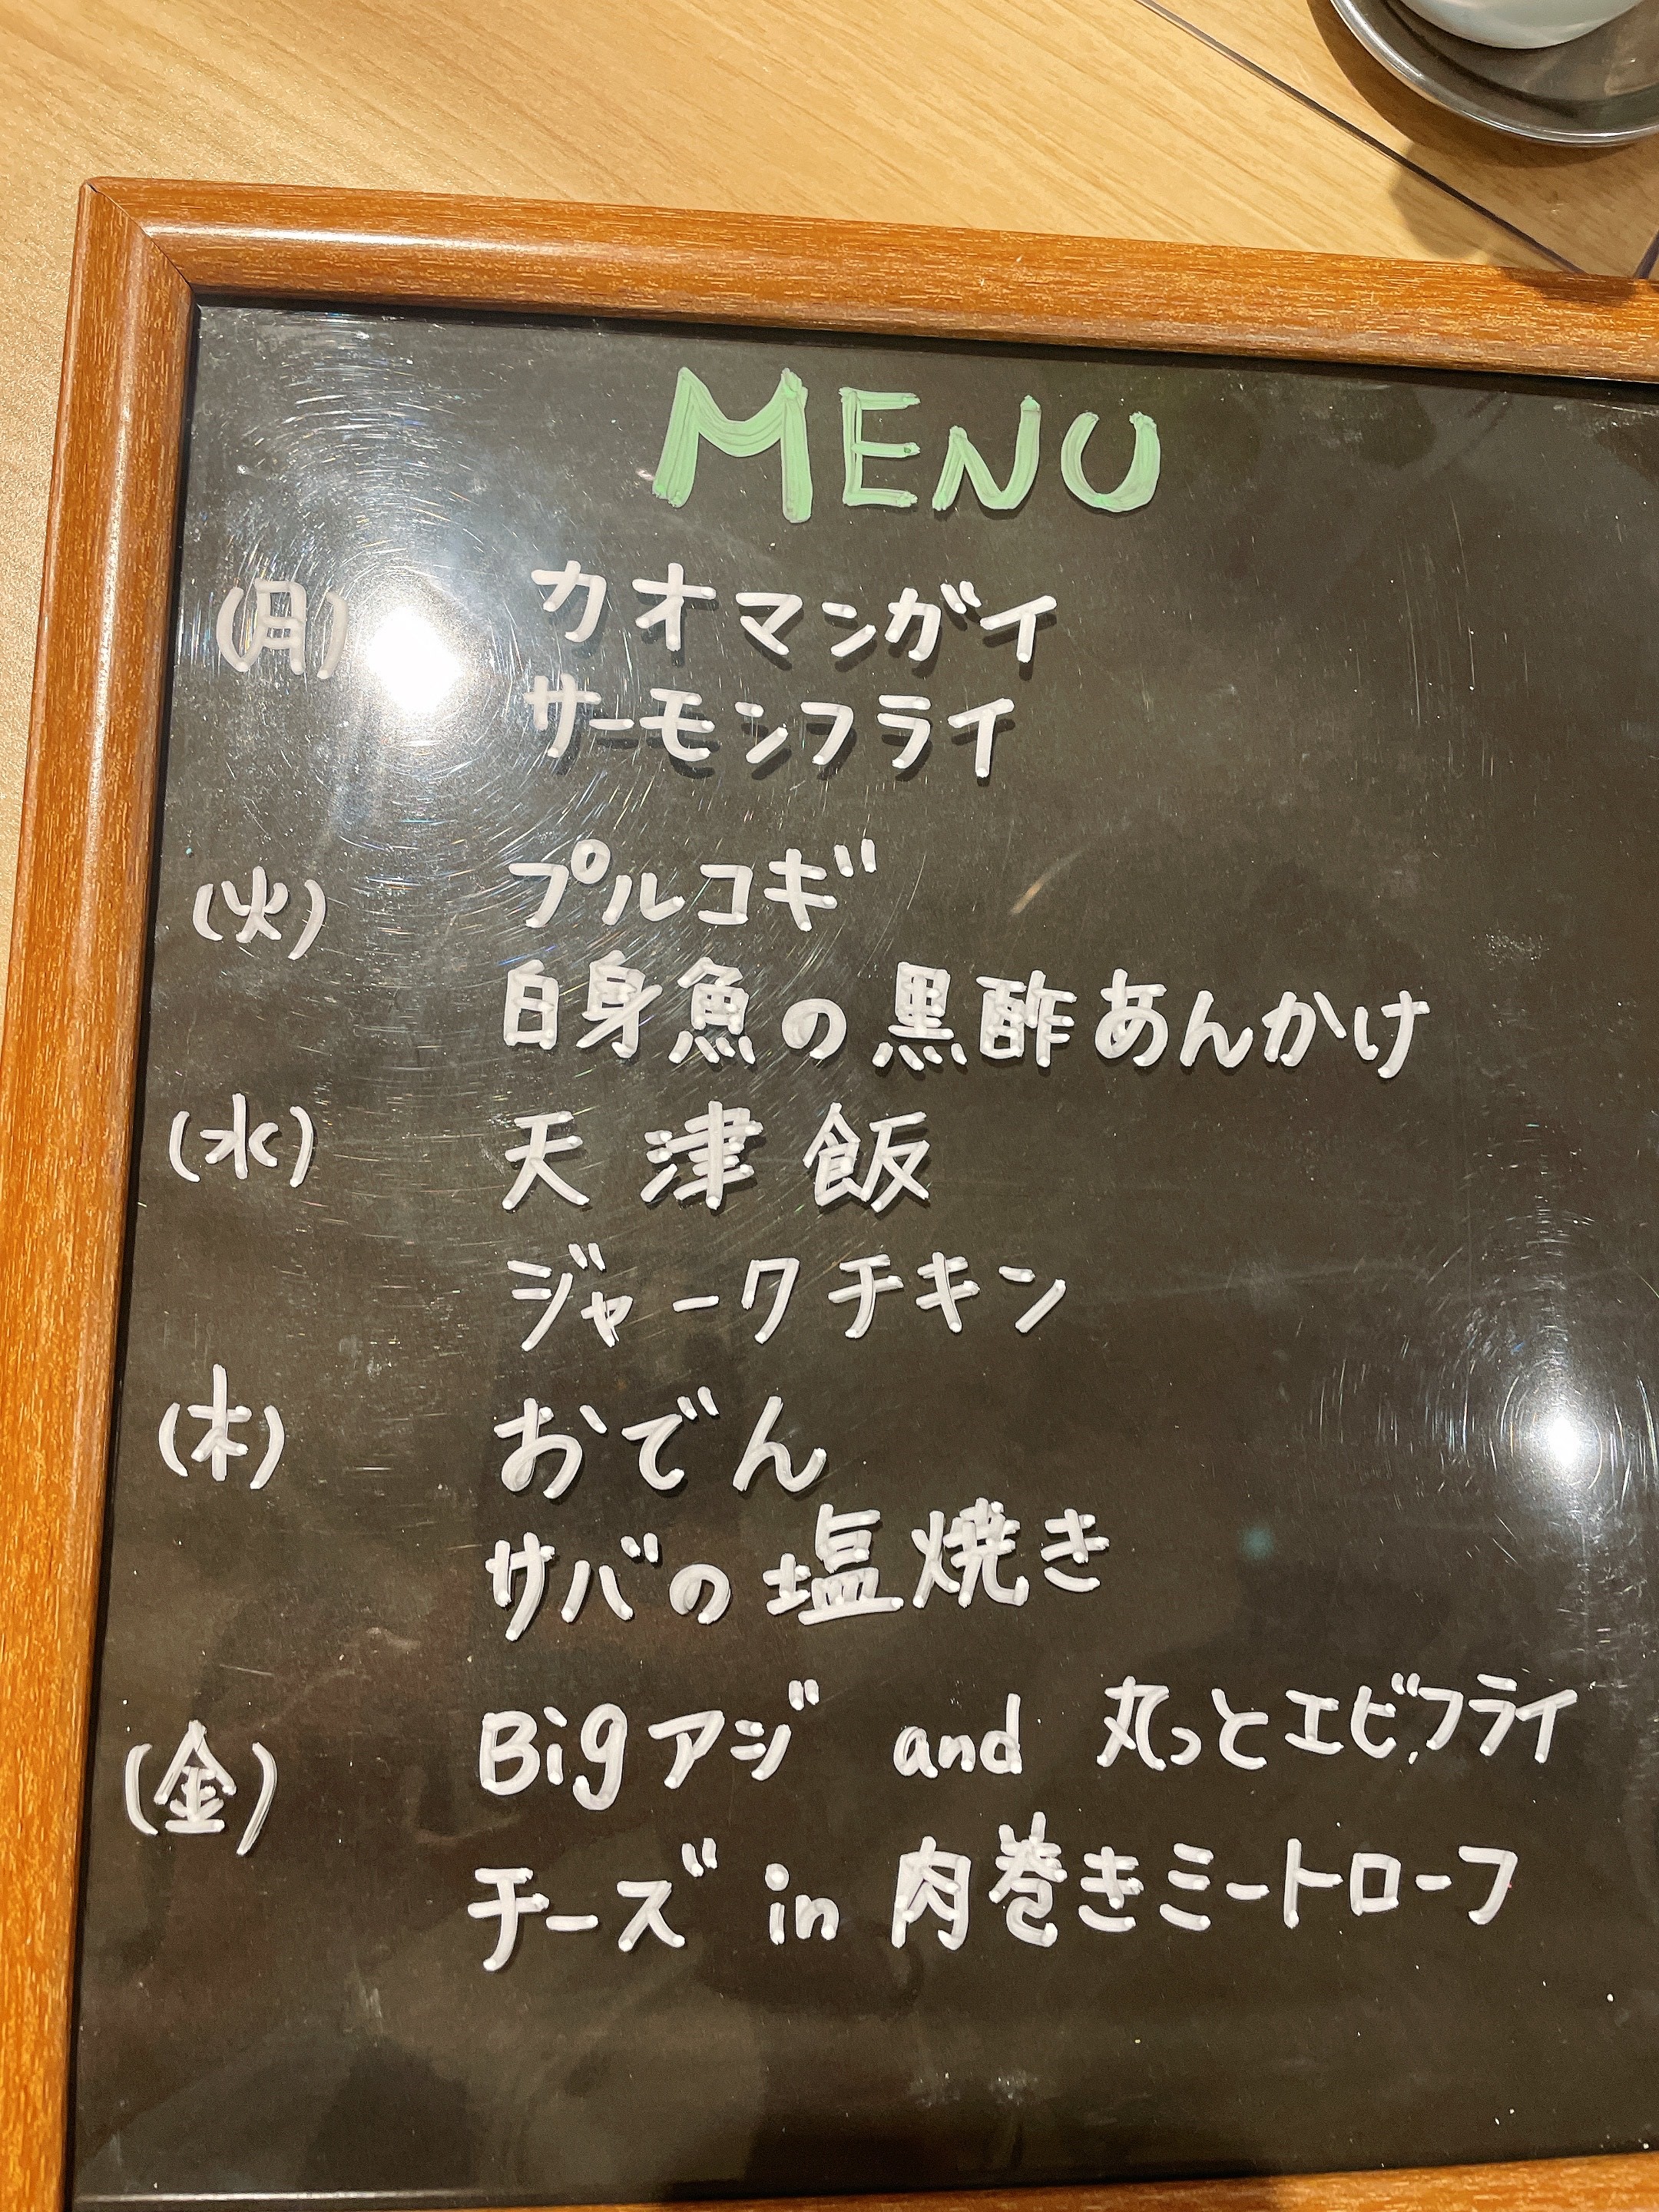 MENU
(月) カオマンガイ
サーモンフライ
(火) プルコギ
白身魚の黒酢あんかけ
(水) 天津飯
ジャークチキン
(木) おでん
サバの塩焼き
(金) Bigアジ and 丸っとエビフライ
チーズ in 肉巻きミートローフ